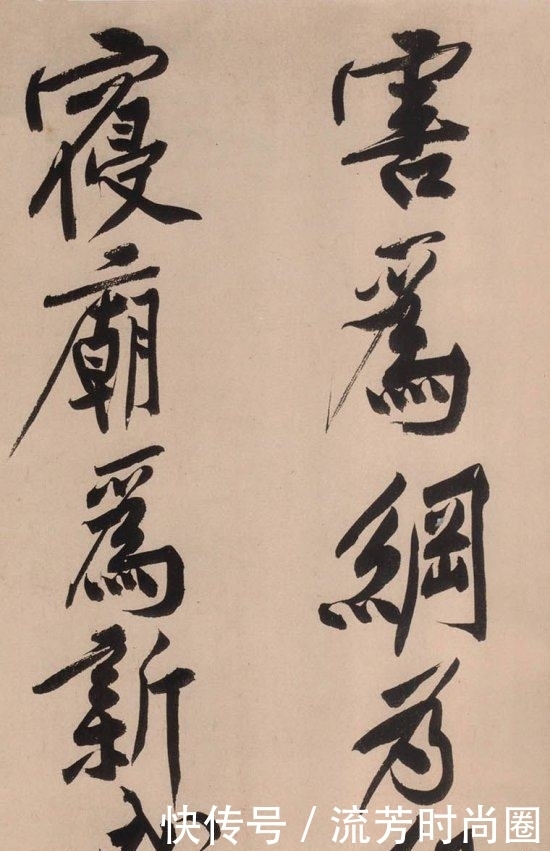 害爲綱為
寢廟爲新
快传号 / 流芳时尚圈